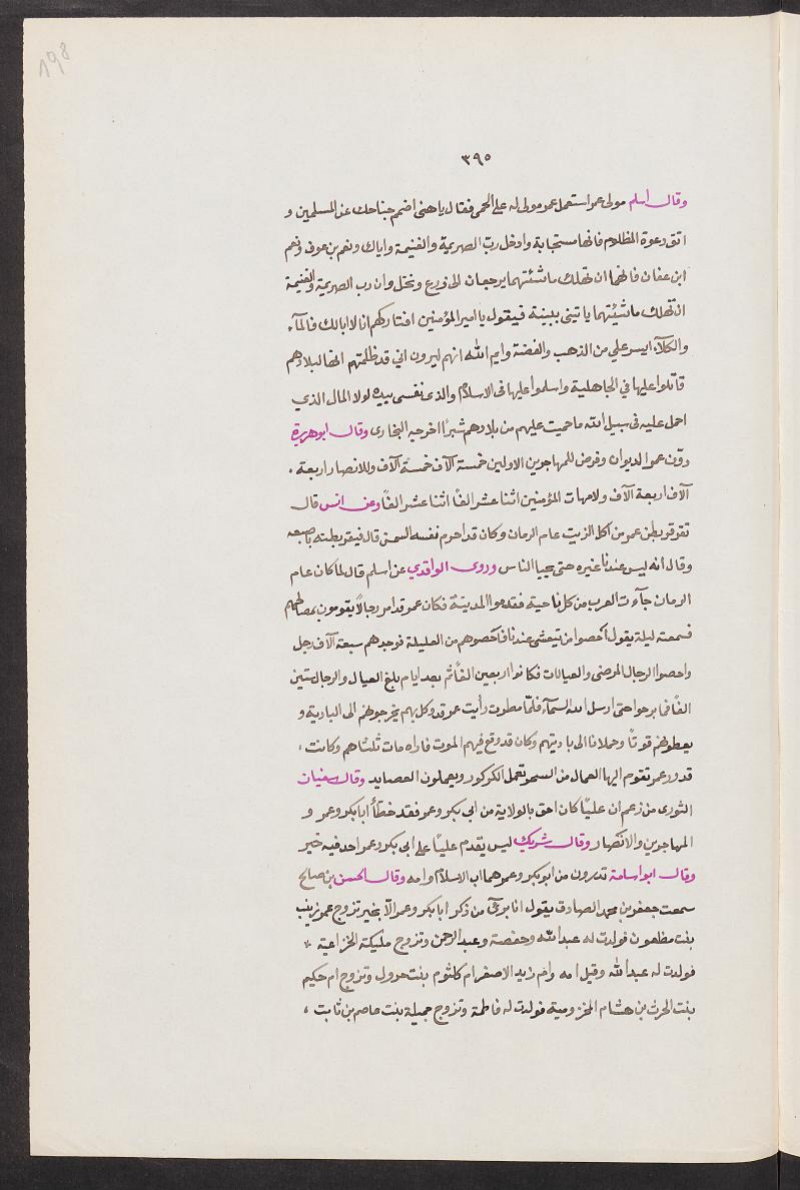 ١٩٨
٣٩٥
وقال اسلم مولى عمر استعمل عمر مولى له على الحمى فقال يا هنى اضمم جناحك عن المسلمين و
اتق دعوة المظلوم فانها مستجابة وادخل ربّ الصريمة والغنيمة واياك ونعم بن عوف ونعم
ابن عفان فانهما ان تهلك ماشيتهما يرجعان الى زرع ونخل وان رب الصريمة والغنيمة
ان تهلك ماشيتهما ياتنى ببينة فيقول يا امير المؤمنين افتاركهم انا لا ابالك فالمآء
والكلآء ايسر علي من الذهب والفضة وايم الله انهم ليرون اني قد ظلمتهم انها لبلادهم
قاتلوا عليها في الجاهلية واسلموا عليها فى الاسلام والذى نفسى بيده لولا المال الذي
احمل عليه فى سبيل الله ما حميت عليهم من بلادهم شبرًا اخرجه البخارى وقال ابو هريرة
دوّن عمر الديوان وفرض للمهاجرين الاولين خمسة آلاف خمسة آلاف وللانصار اربعة
آلاف اربعة آلاف ولامهات المؤمنين اثنا عشر الفًا اثنا عشر الفًا وعن انس قال
تقرقر بطن عمر من اكل الزيت عام الرماد وكان قد احرم نفسه السمن قال فيقر بطنه باصبعه
وقال انه ليس عندنا غيره حتى يحيا الناس وروى الواقدي عن اسلم قال لما كان عام
الرمان جآءت العرب من كل ناحية فقدموا المدينة فكان عمر قد امر رجالاً يقومون بمصالحهم
فسمعته ليلة يقول أحصوا من تيعشى عندنا فاحصوهم من العليلة فوجدهم سبعة آلاف رجل
واحصوا الرجال المرضى والعيالات فكانوا اربعين الفًا ثم بعد ايام بلغ العيال والرجال ستين
الفًا فما برحوا حتى ارسل الله السمآء فلمّا مطرت رأيت عمر قد وكل بهم يخرجوهم الى البادية و
يعطوهم قوتًا وحملانا الى باديتهم وكان قد وقع فيهم الموت فاراه مات ثلثاهم وكانت
قدور عمر تقوم اليها العمال من السحر تعمل الكركور ويعملون العصايد وقال سفيان
الثورى من زعم ان عليًا كان احق بالولاية من ابى بكر وعمر فقد خطّأ ابا بكر وعمر و
المهاجرين والانصار وقال شريك ليس يقدم عليًا على ابى بكر وعمر احد فيه خير
وقال ابو اسامة تدرون من ابو بكر وعمر هما اب الاسلام وامه وقال الحسن بن صالح
سمعت جعفر بن محمد الصادق يقول انا برئ من ذكر ابا بكر وعمر الّا بخير تزوج عمر زينب
بنت مظعون فولدت له عبد الله وحفصة وعبد الرحمن وتزوج مليكة الخزاعية
فولدت له عبد الله وقيل امه وام زيد الاصغر ام كلثوم بنت جرول وتزوج ام حكيم
بنت الحرث بن هشام المخزومية فولدت له فاطمة وتزوج جميلة بنت عاصم بن ثابت